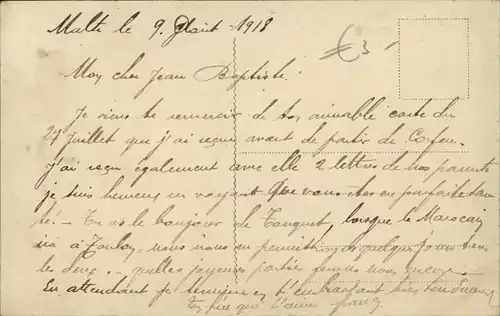 Malte le 9 Août 1918
€3-
Mon cher Jean Baptiste.
Je viens te remercier de ton aimable carte du
27 Juillet que j'ai reçue avant de partir de Corfou.
j'ai reçu également avec elle 2 lettres de nos parents
je suis heureux en voyant que vous êtes en parfaite san-
té. - Tu as le bonjour de Touquet, lorsque le Marocain
ira à Toulon, nous nous en permettrons quelque jours tous
les deux. - quelles joyeuses parties ferons nous encore.
En attendant je termine en t'embrassant bien tendrement
Ton père qui t'aime